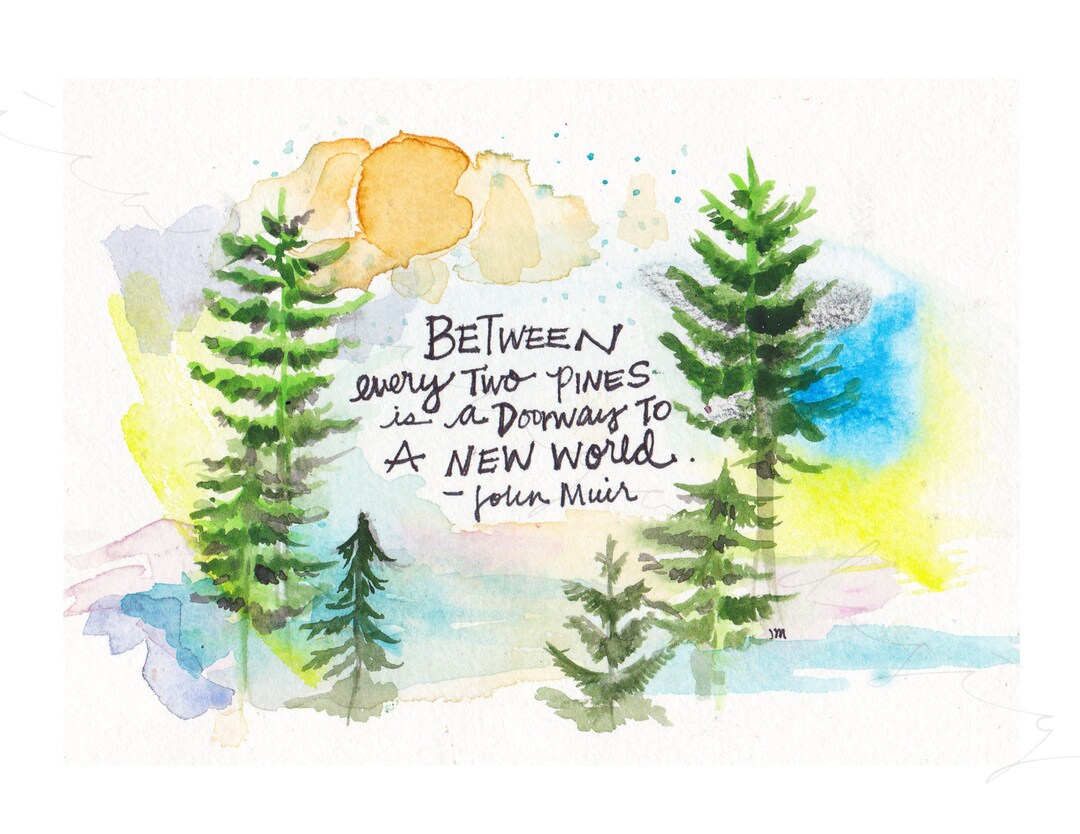 BETWEEN
every TWO PINES
is a Doorway TO
A NEW WORLD.
- John Muir
JM